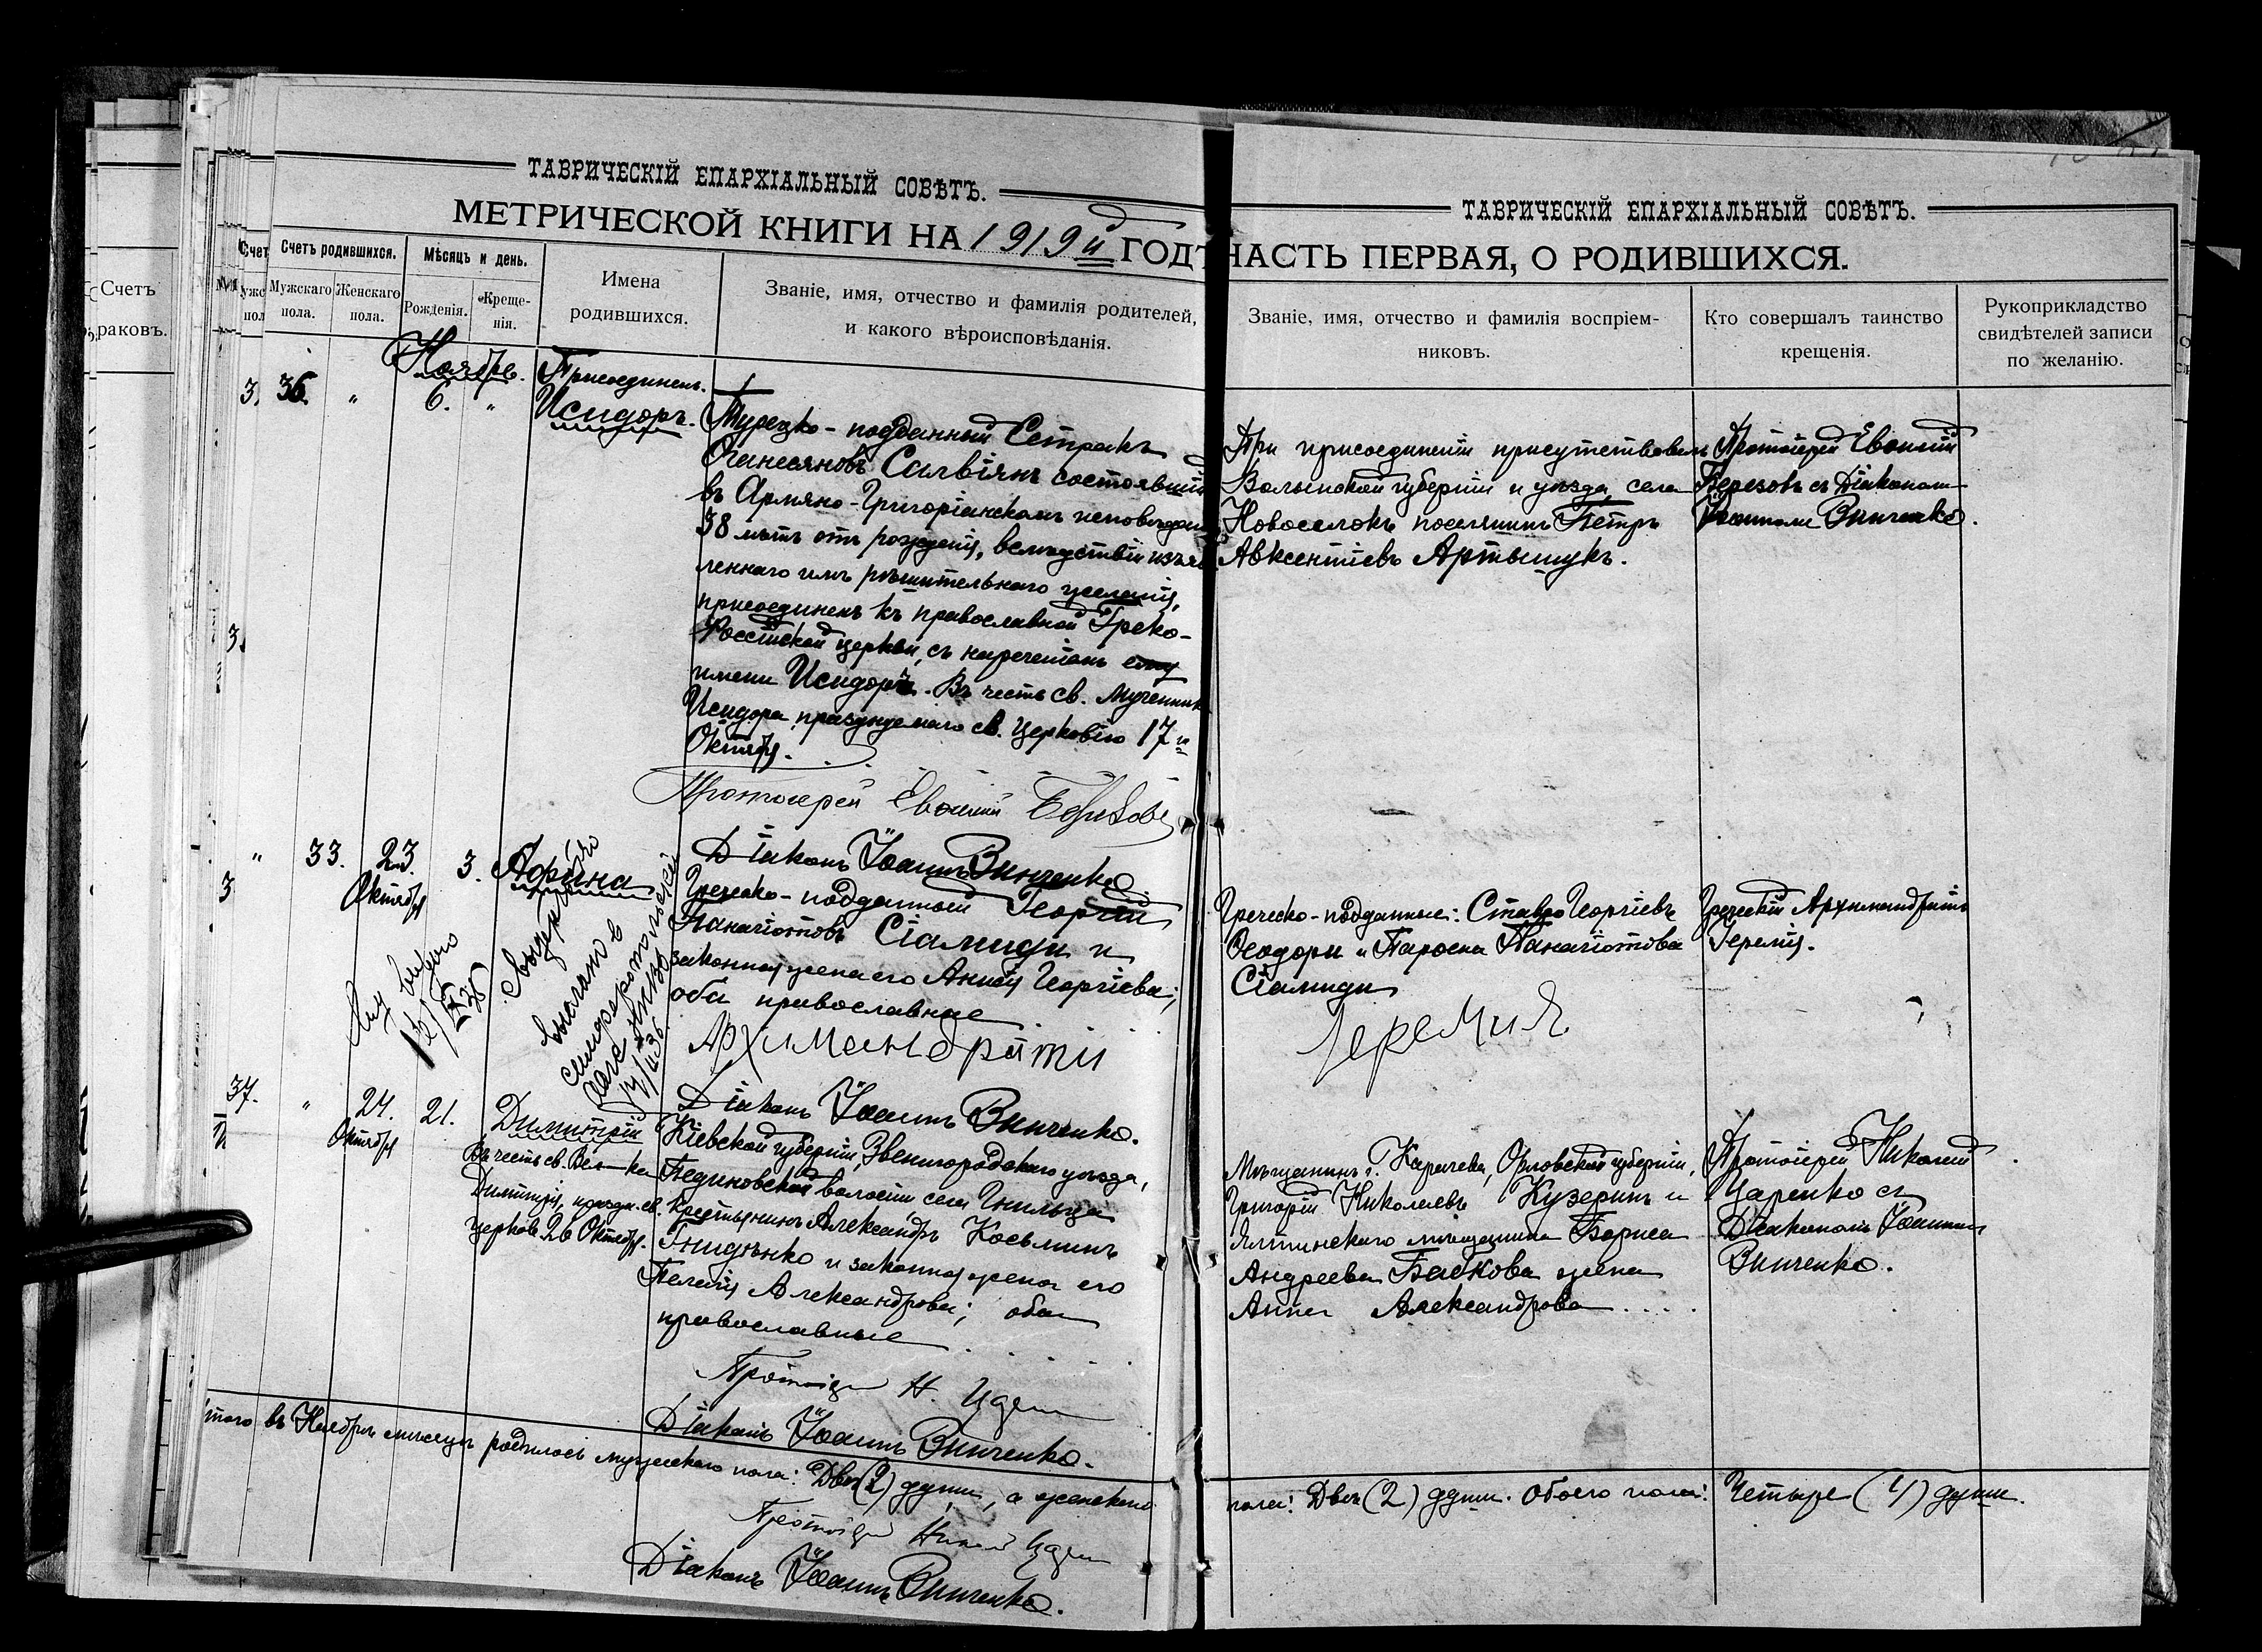 ТАВРИЧЕСКІЙ ЕПАРХІАЛЬНЫЙ СОВѢТЪ.
МЕТРИЧЕСКОЙ КНИГИ НА 1919й ГОДЪ
Счетъ родившихся.
Мѣсяцъ и день.
Имена родившихся.
Званіе, имя, отчество и фамилія родителей,
и какого вѣроисповѣданія.
Мужскаго пола.
Женскаго пола.
Рожденія.
Креще-
нія.
Счетъ
раковъ.
Ноябрь.
36. " 6. "
Присоединенъ.
Исидоръ.
Турецко-подданный Сетракъ
Оганесяновъ Салвіянъ состоявшій
въ Армяно-Григоріанскомъ исповѣдан
38 лѣтъ отъ рожденія, вслѣдствіи изъяв
леннаго имъ рѣшительнаго желанія,
присоединенъ къ православной Греко-
Россійской церкви, съ нареченіемъ ему
имени Исидоръ. Въ честь св. Мученика
Исидора празднуемаго св. Церковію 17го
Октября.
Протоіерей Евѳимій Березовъ
Діаконъ Іоаннъ Винченко
" 33. 23 Октября 3.
Афина
Греческо-подданный Георгій
Панагіотовъ Сіамиди и
законная жена его Анѳія Георгіева;
оба православные
Архимандритъ
Діаконъ Іоаннъ Винченко.
выслано в
симферопольский
17/I 36
37. " 24. Октября 21.
Димитрій
Въ честь св. Вел-ка
Димитрія, праздн. св.
церковь 26 Октября.
Кіевской губерніи, Звенигородскаго уѣзда,
Пединовской волости, села Гнильца
крестьянинъ Александръ Косьминъ
Гнидѣнко и законная жена его
Пелагія Александрова; оба
православные
Протоіерей Н. Царенко
Діаконъ Іоаннъ Винченко.
Итого въ Ноябрѣ мѣсяцѣ родилось мужескаго пола: Двѣ (2) души, а женскаго
Протоіерей Николай Царенко
Діаконъ Іоаннъ Винченко.
ТАВРИЧЕСКІЙ ЕПАРХІАЛЬНЫЙ СОВѢТЪ.
ЧАСТЬ ПЕРВАЯ, О РОДИВШИХСЯ.
Званіе, имя, отчество и фамилія воспріем-
никовъ.
Кто совершалъ таинство
крещенія.
Рукоприкладство
свидѣтелей записи
по желанію.
При присоединеніи присутствовалъ
Волынской губерніи и уѣзда, села
Новоселокъ поселянинъ Петръ
Авксентіевъ Артыщукъ.
Протоіерей Евѳимій
Березовъ съ Діакономъ
Іоанномъ Винченко.
Греческо-подданные: Ставро Георгіевъ
Ѳеодори и Парѳена Панагіотова
Сіамиди
Іеремия
Греческій Архимандритъ
Іеремія.
Мѣщанинъ г. Карачева, Орловской губерніи,
Григорій Николаевъ Кузеринъ и
Ялтинскаго мѣщанина Бориса
Андреева Баскова жена
Анна Александрова
Протоіерей Николай
Царенко съ
Діакономъ Іоанномъ
Винченко.
пола: Двѣ (2) души. Обоего пола: Четыре (4) души.